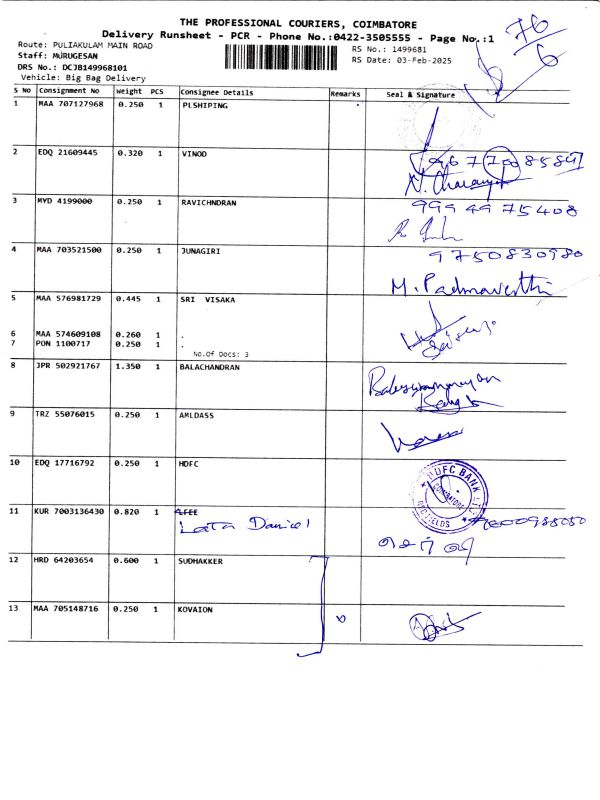 THE PROFESSIONAL COURIERS, COIMBATORE
Delivery Runsheet - PCR - Phone No.:0422-3505555 - Page No.:1
Route: PULIAKULAM MAIN ROAD
Staff: MURUGESAN
DRS No.: DCJB149968101
Vehicle: Big Bag Delivery
RS No.: 1499681
RS Date: 03-Feb-2025
76
6
S No Consignment No Weight PCS Consignee Details Remarks Seal & Signature
1 MAA 707127968 0.250 1 PLSHIPING
2 EDQ 21609445 0.320 1 VINOD
3 MYD 4199000 0.250 1 RAVICHNDRAN 9994975408
4 MAA 703521500 0.250 1 JUNAGIRI 9750830980
M. Padmavathi
5 MAA 576981729 0.445 1 SRI VISAKA
6 MAA 574609108 0.260 1 .
7 PON 1100717 0.250 1 .
No.Of Docs: 3
8 JPR 502921767 1.350 1 BALACHANDRAN
9 TRZ 55076015 0.250 1 AMLDASS
10 EDQ 17716792 0.250 1 HDFC
HDFC BANK
COIMBATORE
11 KUR 7003136430 0.820 1
Lata Daniel
12 HRD 64203654 0.600 1 SUDHAKKER
13 MAA 705148716 0.250 1 KOVAION